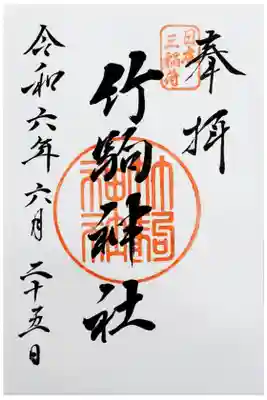 奉拝
日本
三稲荷
竹駒神社
令和六年六月二十五日